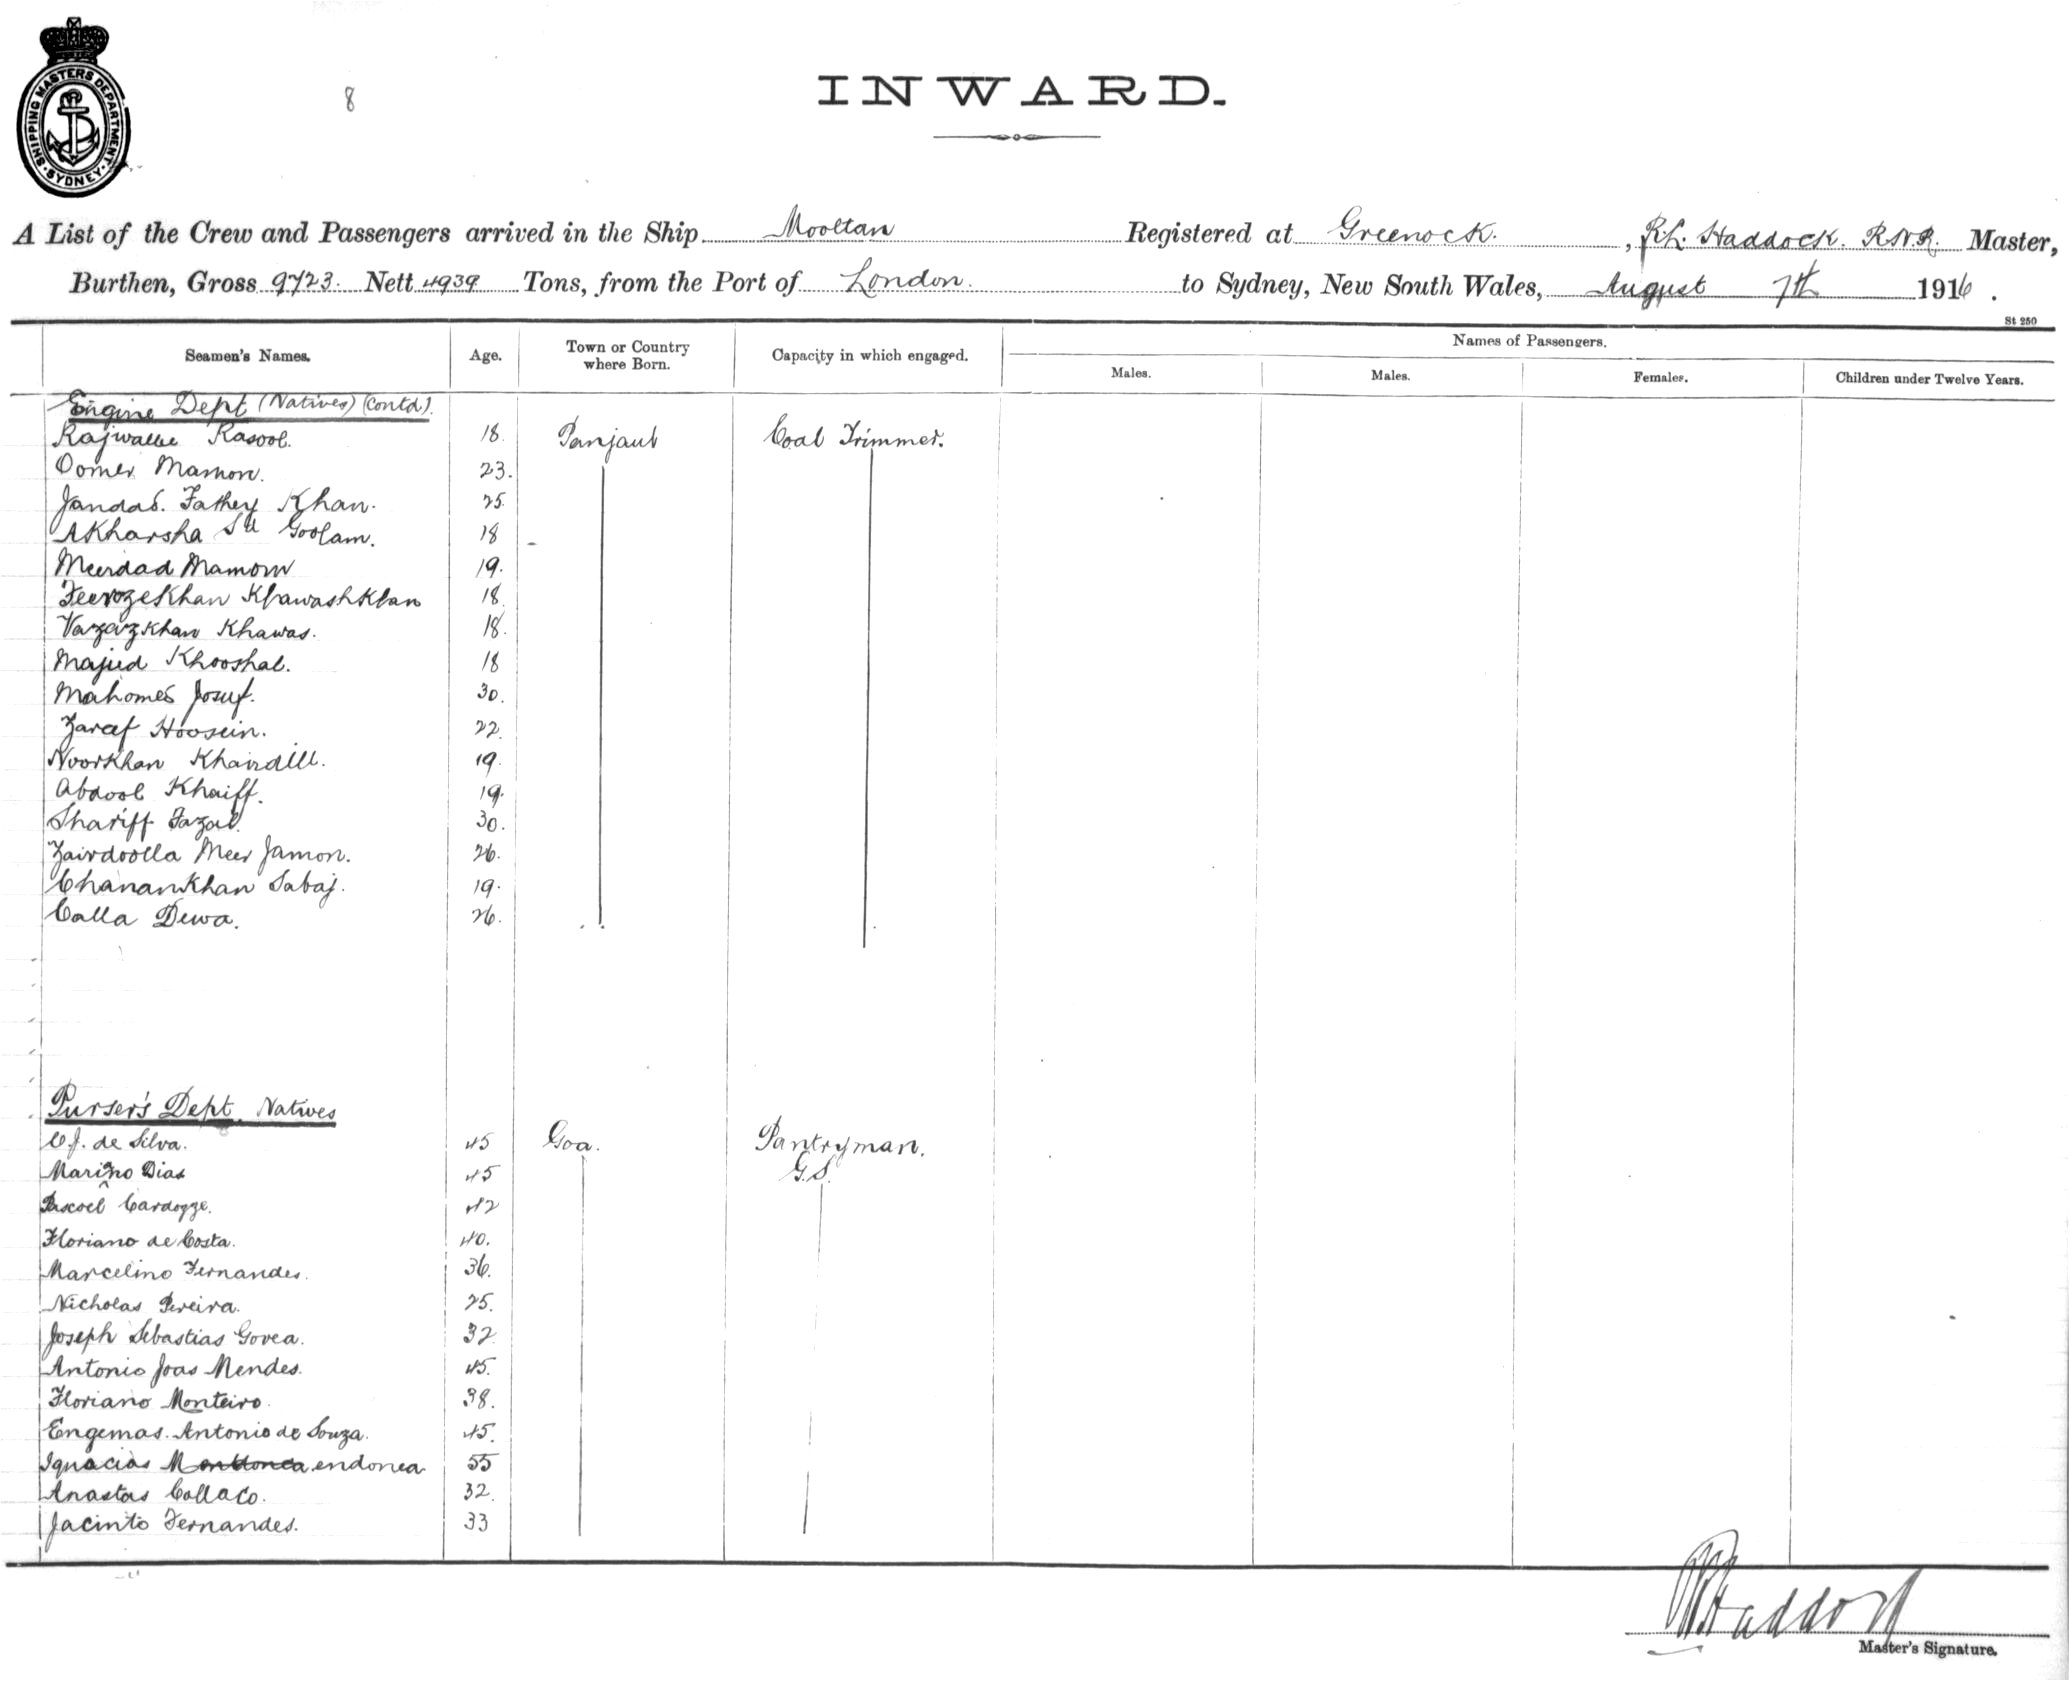 SHIPPING MASTERS DEPARTMENT
SYDNEY
8
INWARD.
A List of the Crew and Passengers arrived in the Ship Mooltan Registered at Greenock. , Haddock. R.N.R. Master,
Burthen, Gross 9723. Nett 4939 Tons, from the Port of London. to Sydney, New South Wales, August 7th 1916.
St 250
Seamen's Names. Age. Town or Country where Born. Capacity in which engaged. Names of Passengers.
Males. Males. Females. Children under Twelve Years.
Engine Dept (Natives) (Contd).
Rajwallie Rasool. 18. Panjaub Coal Trimmer.
Oomer Mamon. 23.
Jandad. Fathey Khan. 25.
Akharsha Goolam. 18
Meerdad Mamom 19.
Feerozekhan Khawashkhan 18
Vazazkhan Khawas. 18.
Majid Khooshal. 18
Mahomed Josuf. 30.
Zaraf Hoosein. 22.
Noorkhan Khairdill. 19.
Abdool Khaiff. 19.
Shariff Fazal. 30.
Zairdoolla Meer Jamon. 26.
Chanankhan Sabaj. 19.
Calla Dewa. 26.
Purser's Dept. Natives
C.J. de Silva. 45 Goa. Pantryman.
Mariano Dias 45 G.S.
Pascoel Cardozze. 42
Floriano de Costa. 40.
Marcelino Fernandes. 36.
Nicholas Pereira. 25.
Joseph Sebastias Govea. 32.
Antonio Joas Mendes. 45.
Floriano Monteiro. 38.
Engemas. Antonio de Souza. 45.
Ignacias Mendonca 55
Anastas Collaco. 32.
Jacinto Fernandes. 33
Haddock
Master's Signature.